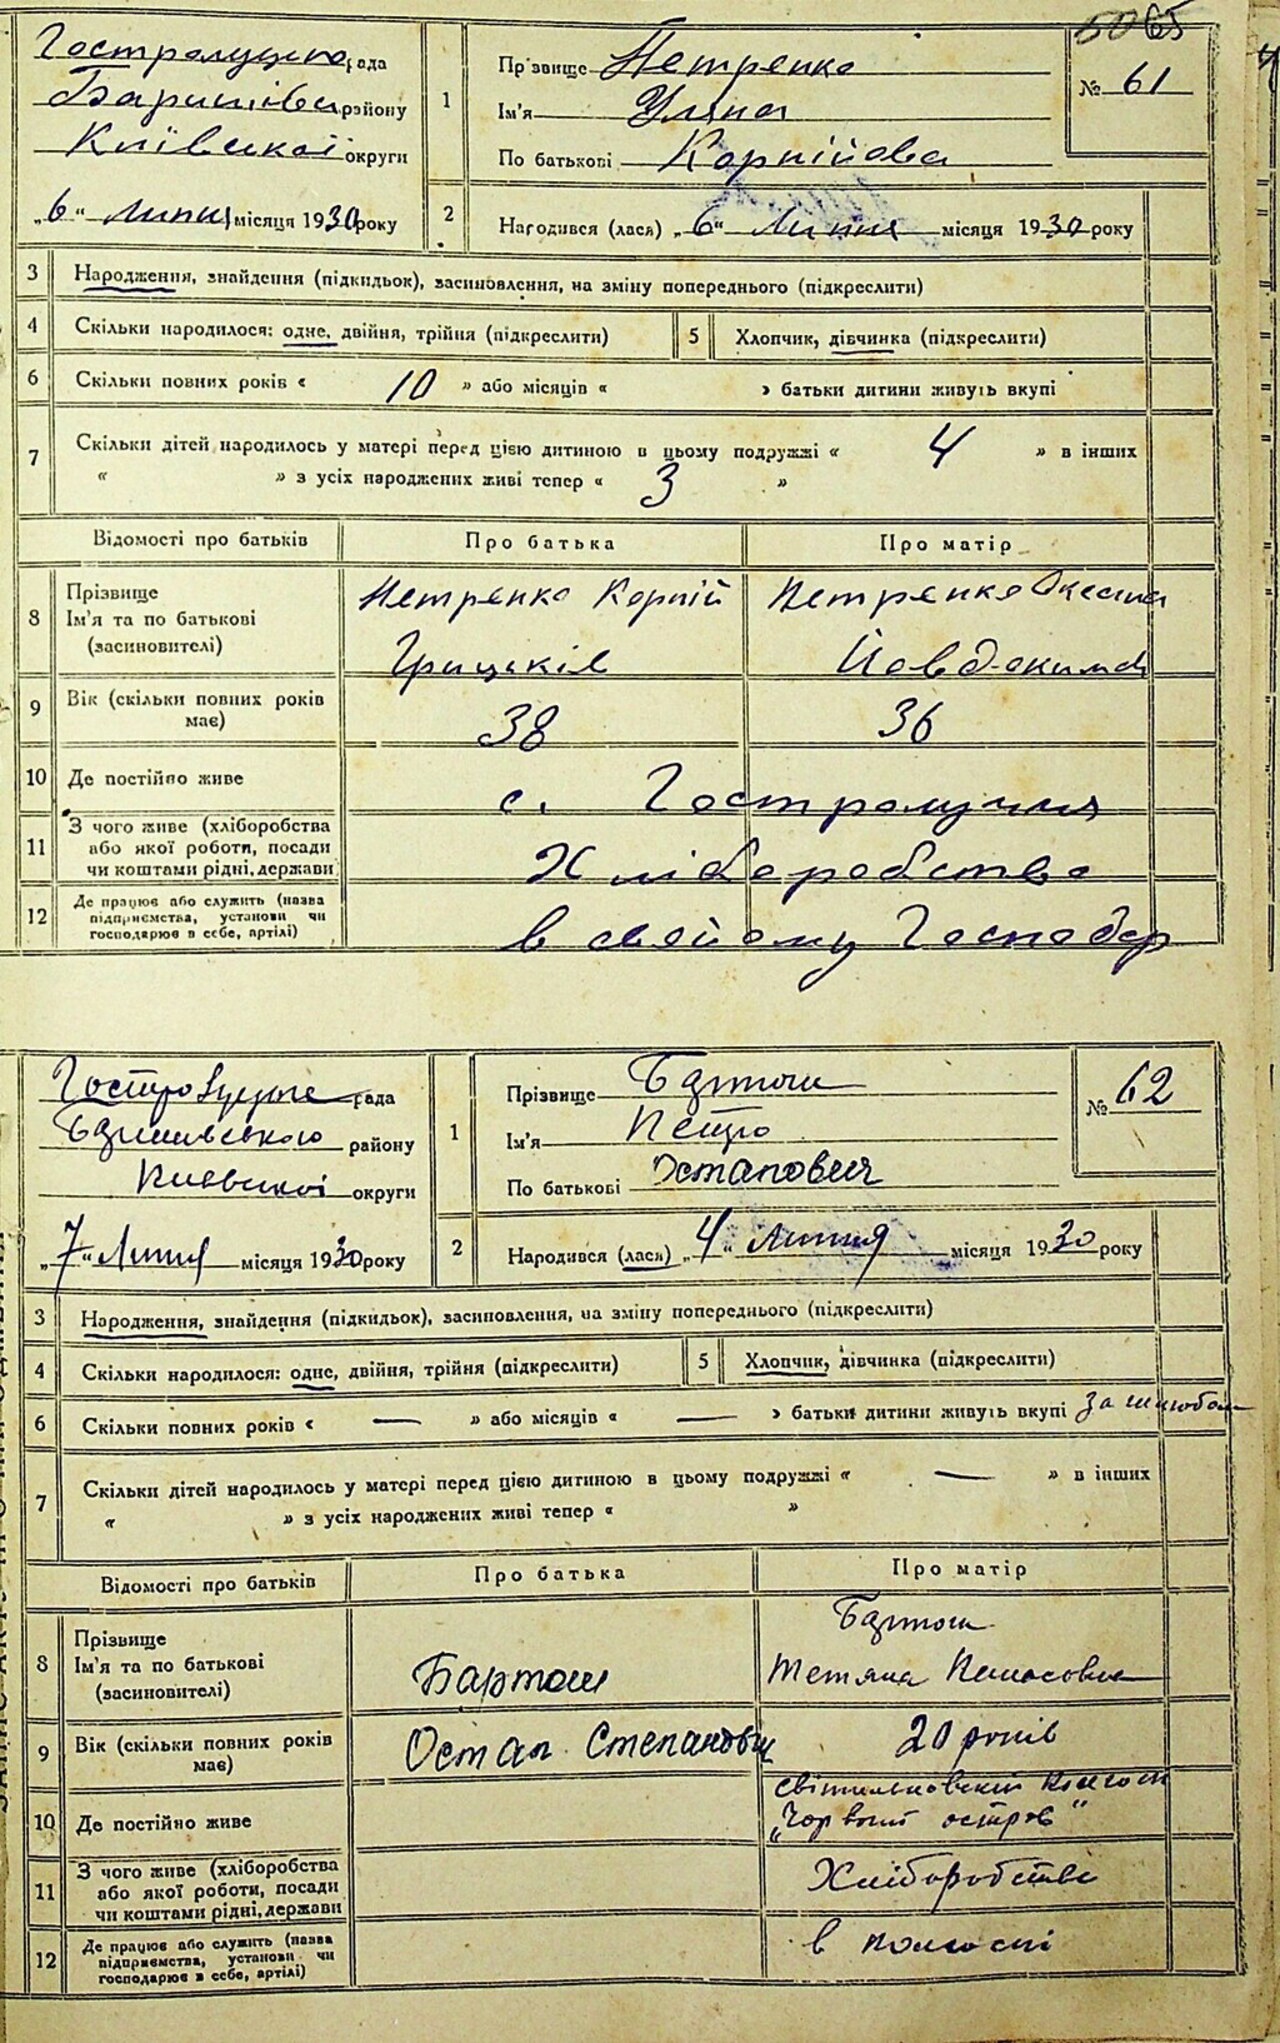 65
Гостролуцька рада
Баришівск району
Київської округи
„6“ Липня місяця 1930 року
1
Прізвище Петренко
Ім'я Уляна
По батькові Корнійова
№ 61
2
Народився (лася) „6“ Липня місяця 1930 року
3 Народження, знайдення (підкидьок), засиновлення, на зміну попереднього (підкреслити)
4 Скільки народилося: одне, двійня, трійня (підкреслити) 5 Хлопчик, дівчинка (підкреслити)
6 Скільки повних років « 10 » або місяців « » батьки дитини живуть вкупі
7 Скільки дітей народилось у матері перед цією дитиною в цьому подружжі « 4 » в інших
« » з усіх народжених живі тепер « 3 »
Відомості про батьків Про батька Про матір
8 Прізвище
Ім'я та по батькові
(засиновителі)
Петренко Корній
Грицьків
Петренко Оксана
Йовдокимов
9 Вік (скільки повних років
має)
38 36
10 Де постійно живе с. Гостролуччя
11 З чого живе (хліборобства
або якої роботи, посади
чи коштами рідні, держави
Хліборобство
12 Де працює або служить (назва
підприємства, установи чи
господарює в себе, артілі)
в свойому Господар
Гостролуцьке рада
Баришівського району
Київської округи
„7“ Липня місяця 1930 року
1
Прізвище Бартош
Ім'я Петро
По батькові Остапович
№ 62
2
Народився (лася) „4“ Липня місяця 1930 року
3 Народження, знайдення (підкидьок), засиновлення, на зміну попереднього (підкреслити)
4 Скільки народилося: одне, двійня, трійня (підкреслити) 5 Хлопчик, дівчинка (підкреслити)
6 Скільки повних років « — » або місяців « — » батьки дитини живуть вкупі
7 Скільки дітей народилось у матері перед цією дитиною в цьому подружжі « — » в інших
« » з усіх народжених живі тепер « »
Відомості про батьків Про батька Про матір
8 Прізвище
Ім'я та по батькові
(засиновителі)
Бартош
Остап Степанович
Бартош
Тетяна
9 Вік (скільки повних років
має)
20 років
10 Де постійно живе
„Червоний остров“
11 З чого живе (хліборобства
або якої роботи, посади
чи коштами рідні, держави
Хліборобство
12 Де працює або служить (назва
підприємства, установи чи
господарює в себе, артілі)
в колгоспі